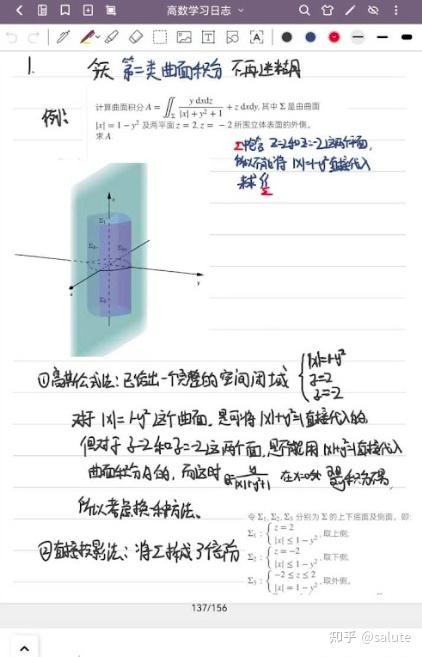 高数学习日志
1. 今天 第二类曲面积分 不再迷糊
例：
计算曲面积分 A = ∬_Σ y dxdz / (|x| + y² + 1) + z dxdy, 其中 Σ 是由曲面
|x| = 1 − y² 及两平面 z = 2, z = −2 所围立体表面的外侧。
求 A.
Σ包含 z=2和z=-2这两个平面,
所以不能将 |x|=1-y² 直接代入
来求 ∬_Σ
z
Σ₁
y
x
①高斯公式法：已给出一个完整的空间闭域 { |x|=1-y²
z=2
z=-2
对于 |x|=1-y² 这个曲面，是可将 |x|+y²=1 直接代入的
但对于 z=2 和 z=-2 这两个面，是不能用 |x|+y²=1 直接代入
曲面积分A的，而这时 y/(|x|+y²+1) 在 x=0处
所以考虑换一种方法、
令 Σ₁, Σ₂, Σ₃ 分别为 Σ 的上下底面及侧面, 即:
②直接投影法：将Σ拆成了3个部分
Σ₁ : { z = 2
|x| ≤ 1 − y² , 取上侧;
Σ₂ : { z = −2
|x| ≤ 1 − y² , 取下侧;
Σ₃ : { −2 ≤ z ≤ 2
|x| = 1 − y² , 取外侧。
137/156
知乎 @salute